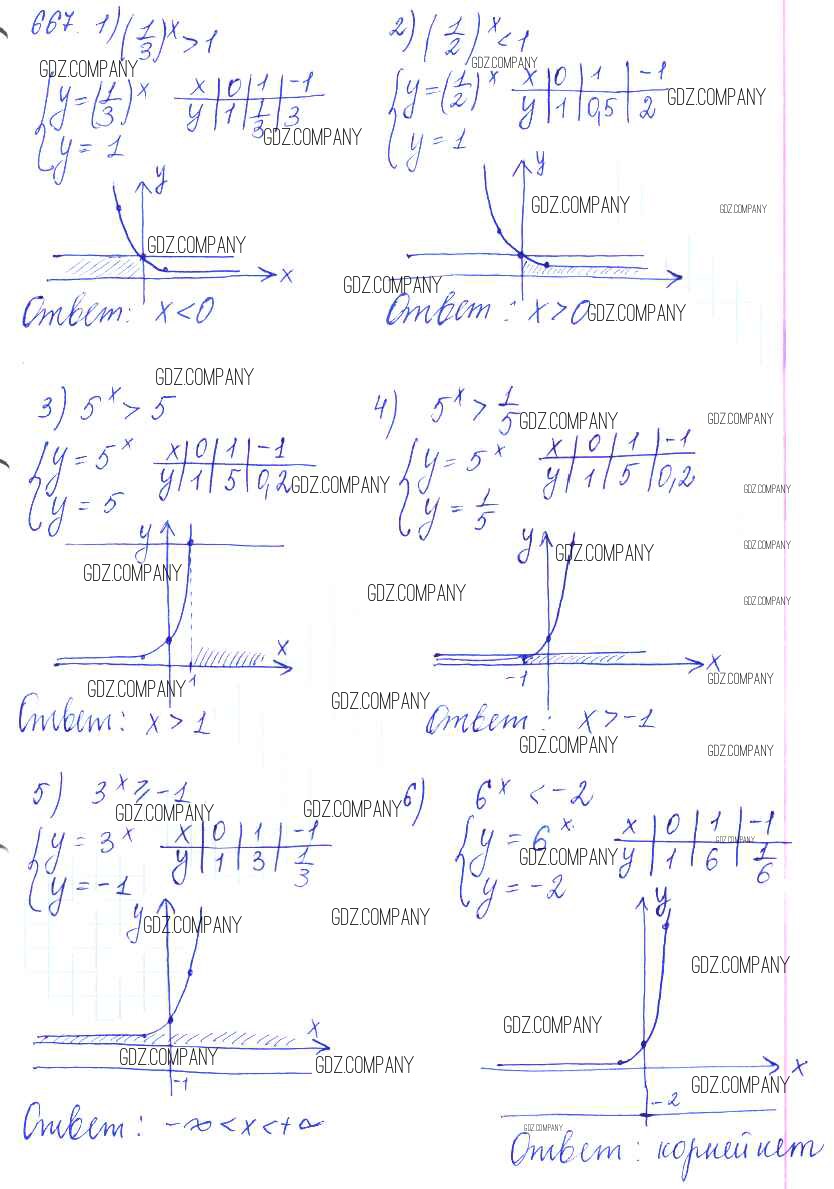 667. 1) (1/3)^x > 1
GDZ.COMPANY
{ y = (1/3)^x
y = 1
x | 0 | 1 | -1
y | 1 | 1/3 | 3
GDZ.COMPANY
y
GDZ.COMPANY
x
Ответ: x < 0
2) (1/2)^x < 1
GDZ.COMPANY
{ y = (1/2)^x
y = 1
x | 0 | 1 | -1
y | 1 | 0,5 | 2
GDZ.COMPANY
y
GDZ.COMPANY
GDZ.COMPANY
GDZ.COMPANY
Ответ: x > 0
GDZ.COMPANY
GDZ.COMPANY
3) 5^x > 5
{ y = 5^x
y = 5
x | 0 | 1 | -1
y | 1 | 5 | 0,2
GDZ.COMPANY
y
GDZ.COMPANY
x
GDZ.COMPANY
1
Ответ: x > 1
4) 5^x > 1/5
GDZ.COMPANY
GDZ.COMPANY
{ y = 5^x
y = 1/5
x | 0 | 1 | -1
y | 1 | 5 | 0,2
GDZ.COMPANY
y
GDZ.COMPANY
GDZ.COMPANY
GDZ.COMPANY
GDZ.COMPANY
x
-1
GDZ.COMPANY
GDZ.COMPANY
Ответ: x > -1
GDZ.COMPANY
GDZ.COMPANY
5) 3^x ⩾ -1
GDZ.COMPANY
GDZ.COMPANY
{ y = 3^x
y = -1
x | 0 | 1 | -1
y | 1 | 3 | 1/3
y
GDZ.COMPANY
GDZ.COMPANY
x
GDZ.COMPANY
GDZ.COMPANY
-1
Ответ: -∞ < x < +∞
6) 6^x < -2
{ y = 6^x
y = -2
GDZ.COMPANY
x | 0 | 1 | -1
y | 1 | 6 | 1/6
GDZ.COMPANY
y
GDZ.COMPANY
GDZ.COMPANY
x
GDZ.COMPANY
-2
GDZ.COMPANY
Ответ: корней нет